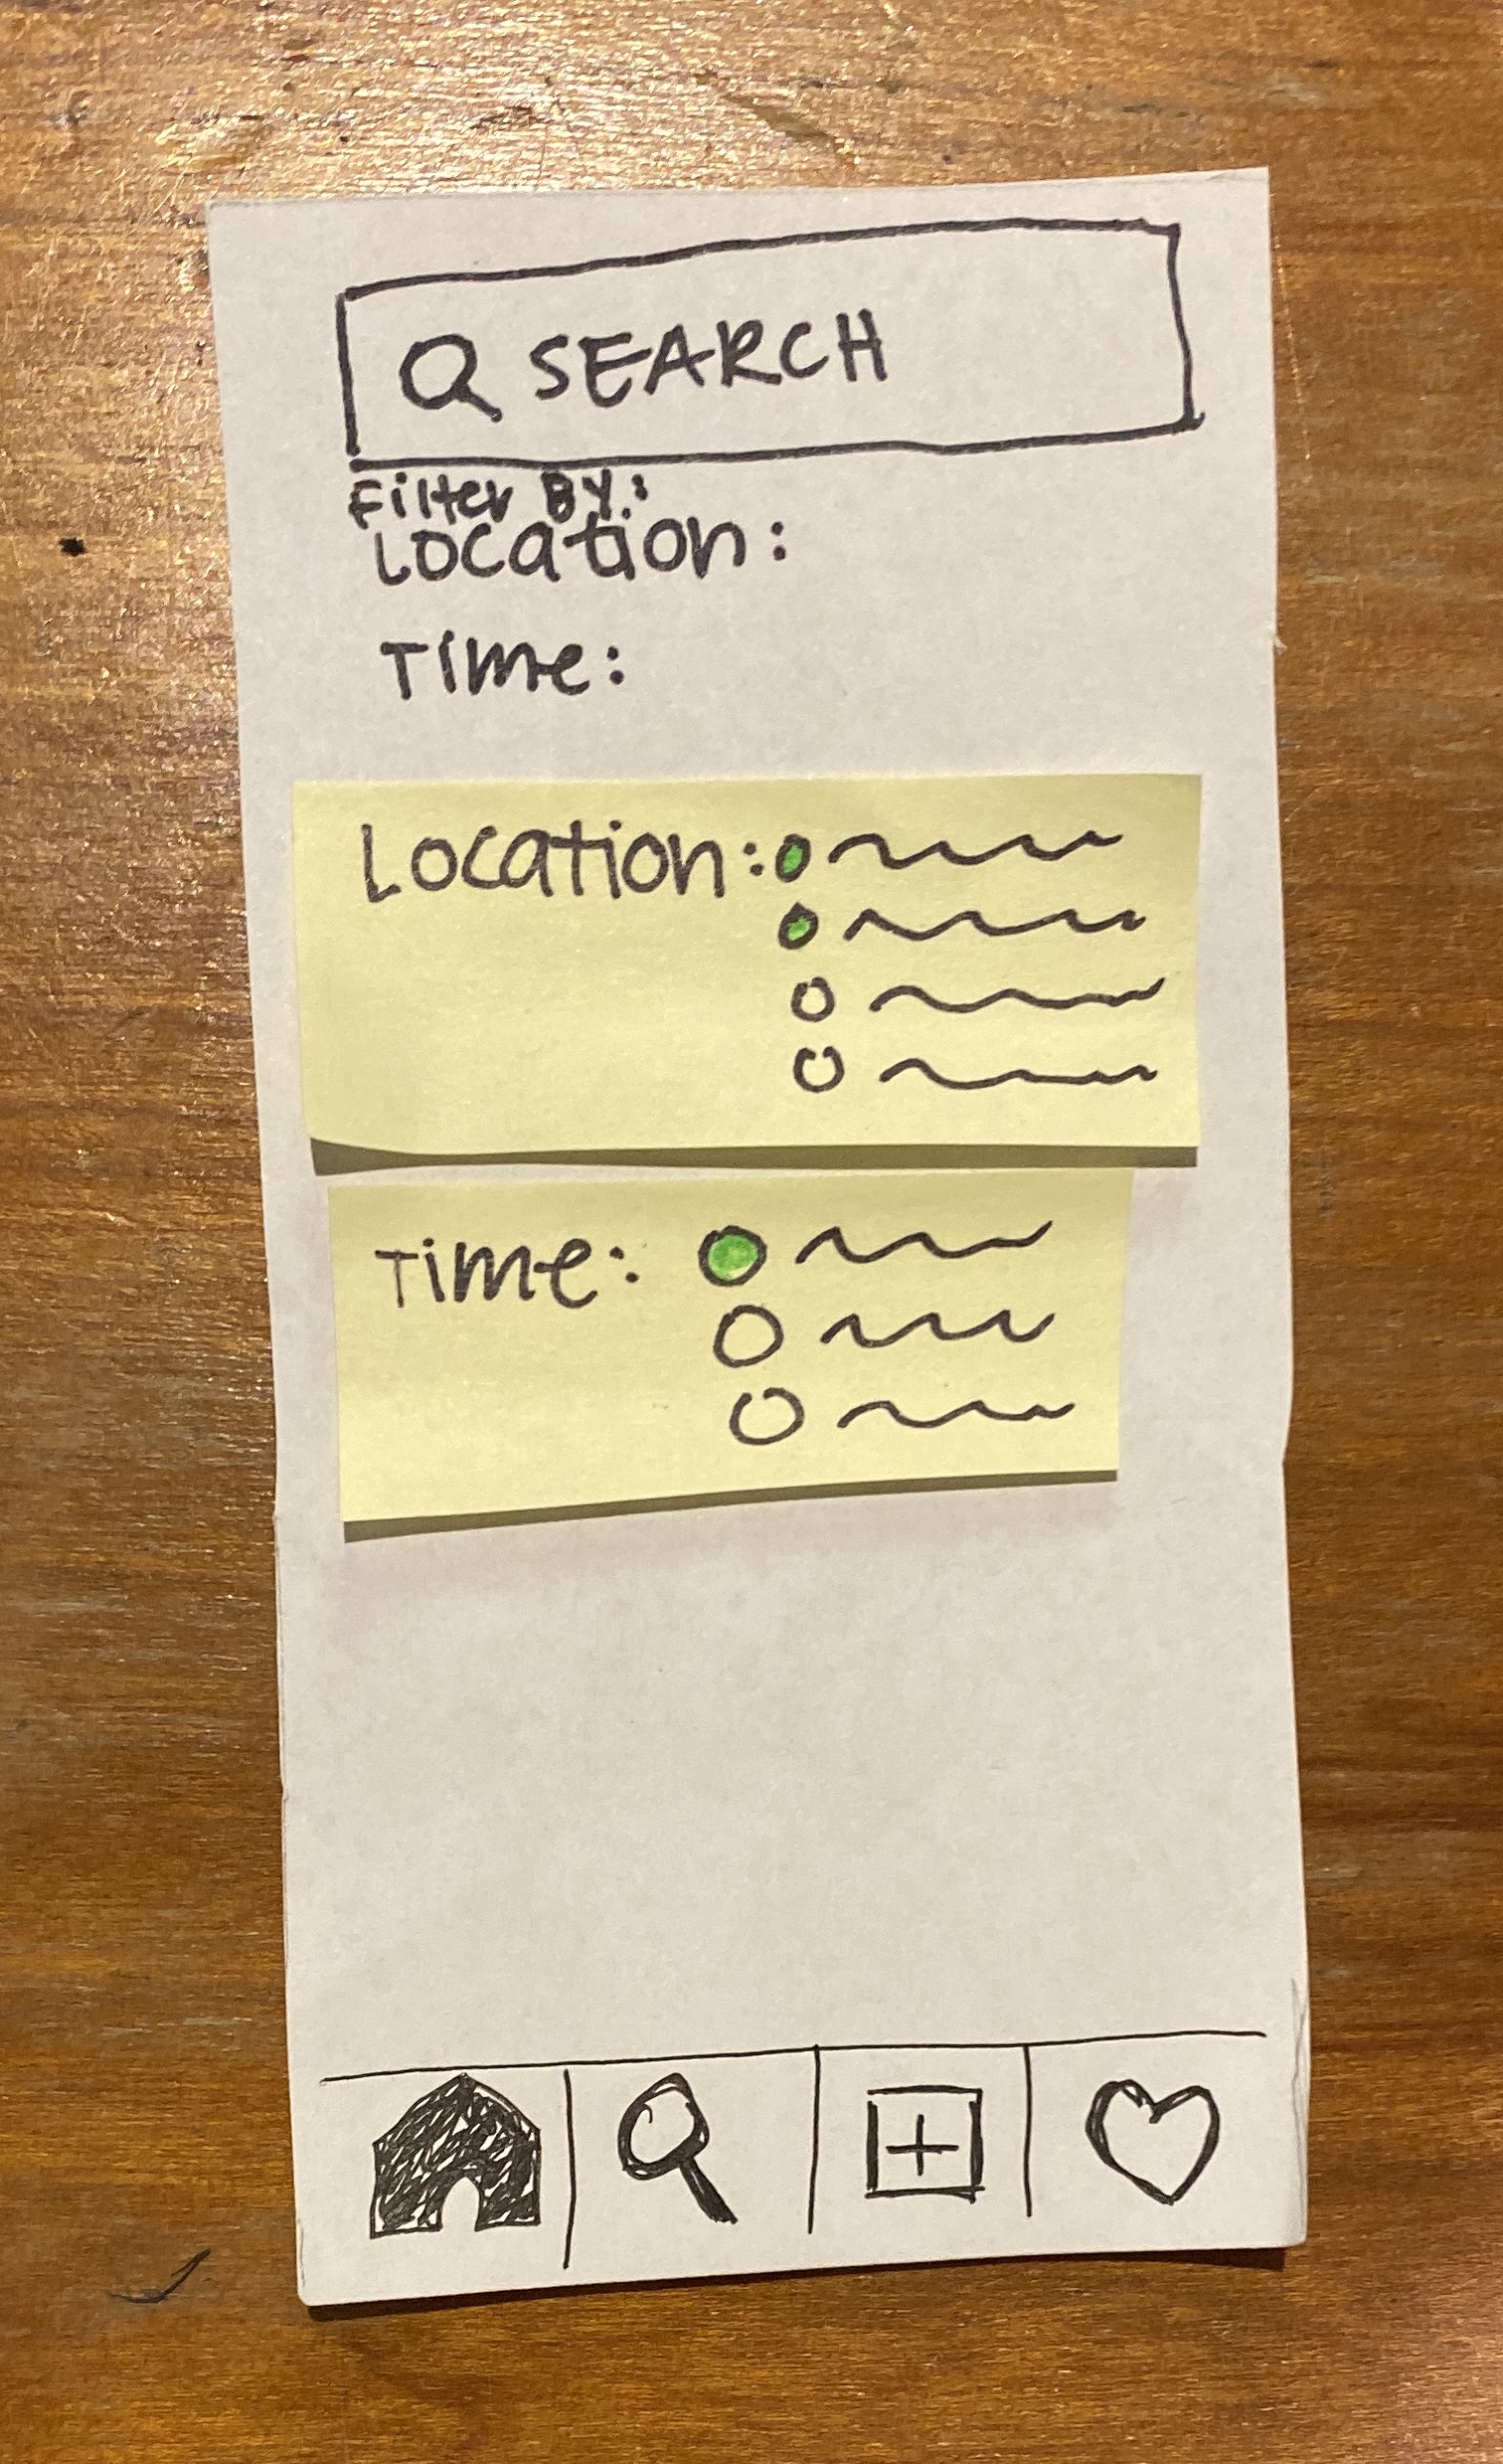 SEARCH
Filter By:
Location:
Time:
Location:
Time: